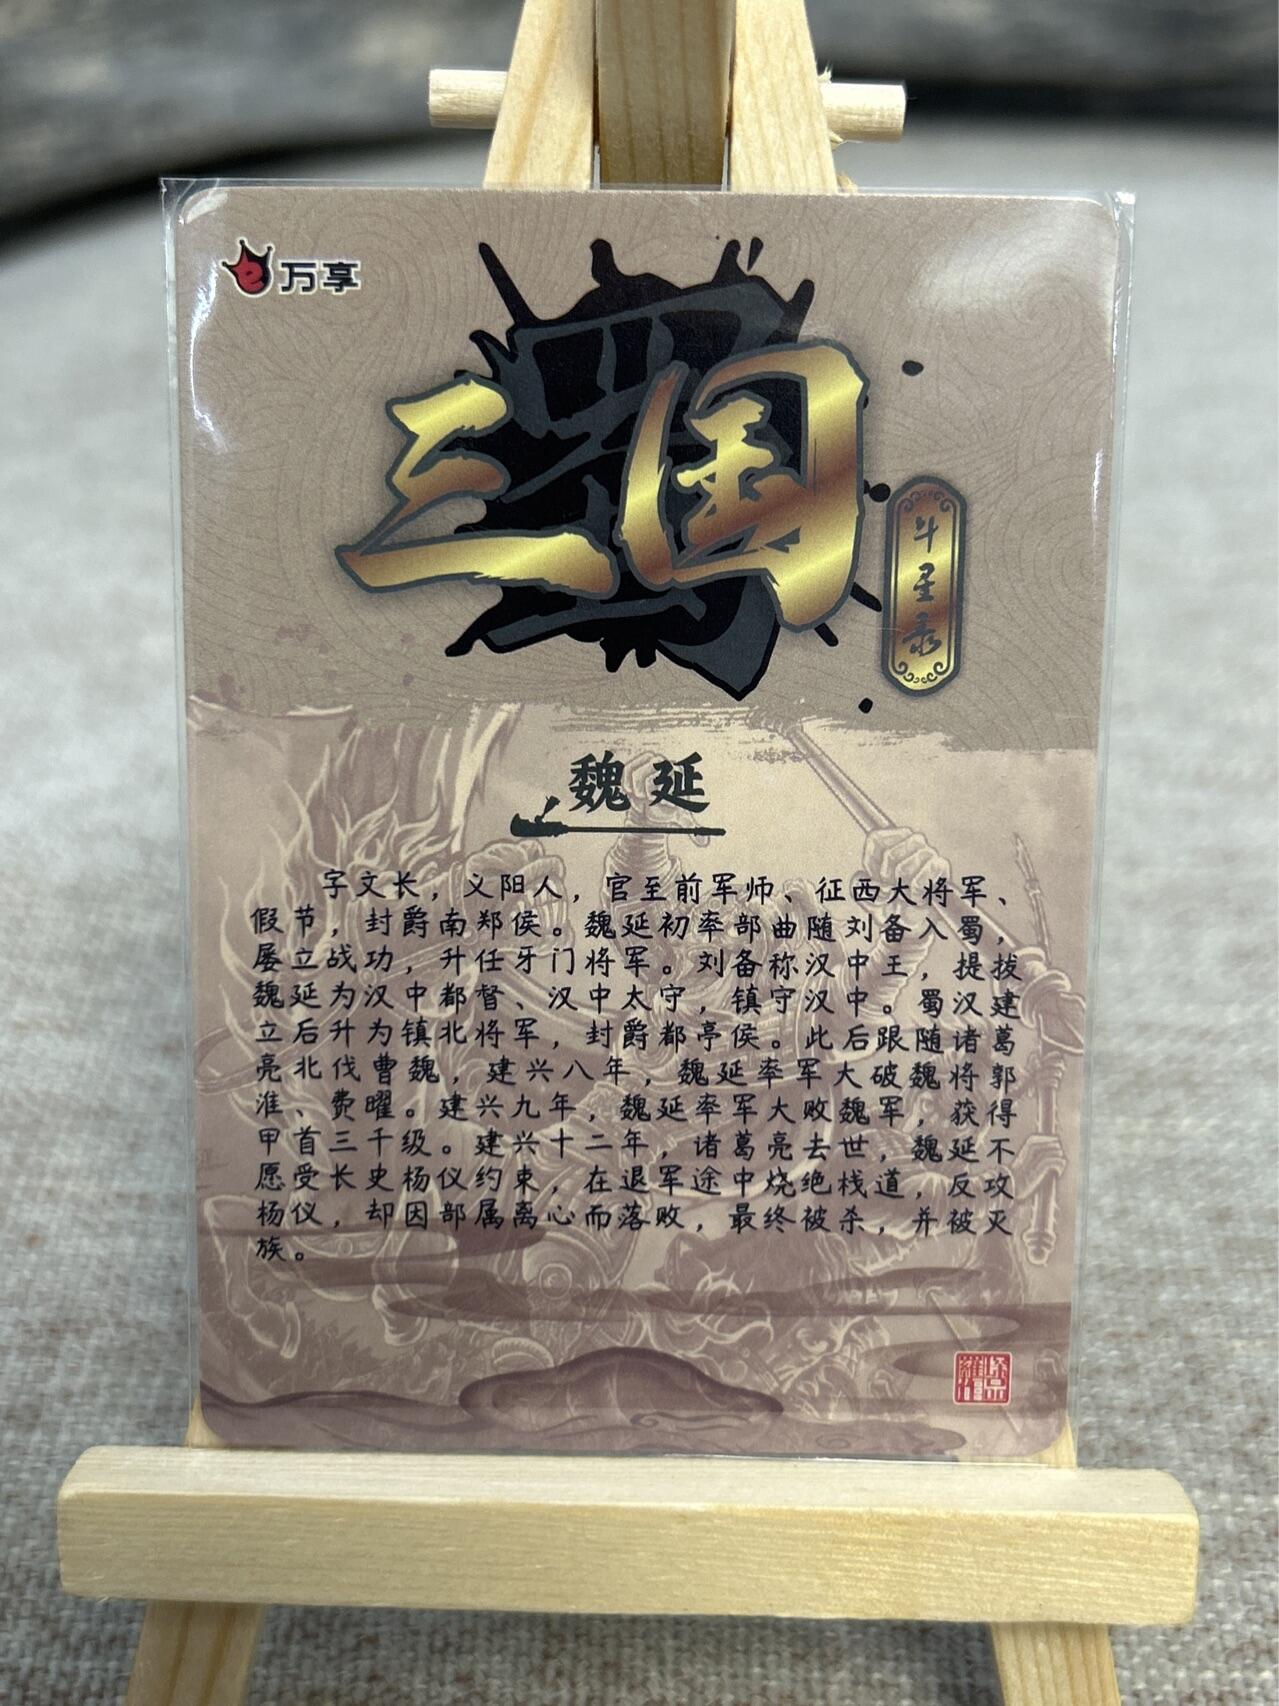 万享
三国
斗星录
魏延
字文长，义阳人，官至前军师、征西大将军、
假节，封爵南郑侯。魏延初率部曲随刘备入蜀，
屡立战功，升任牙门将军。刘备称汉中王，提拔
魏延为汉中都督、汉中太守，镇守汉中。蜀汉建
立后升为镇北将军，封爵都亭侯。此后跟随诸葛
亮北伐曹魏，建兴八年，魏延率军大破魏将郭
淮、费曜。建兴九年，魏延率军大败魏军，获得
甲首三千级。建兴十二年，诸葛亮去世，魏延不
愿受长史杨仪约束，在退军途中烧绝栈道，反攻
杨仪，却因部属离心而落败，最终被杀，并被灭
族。